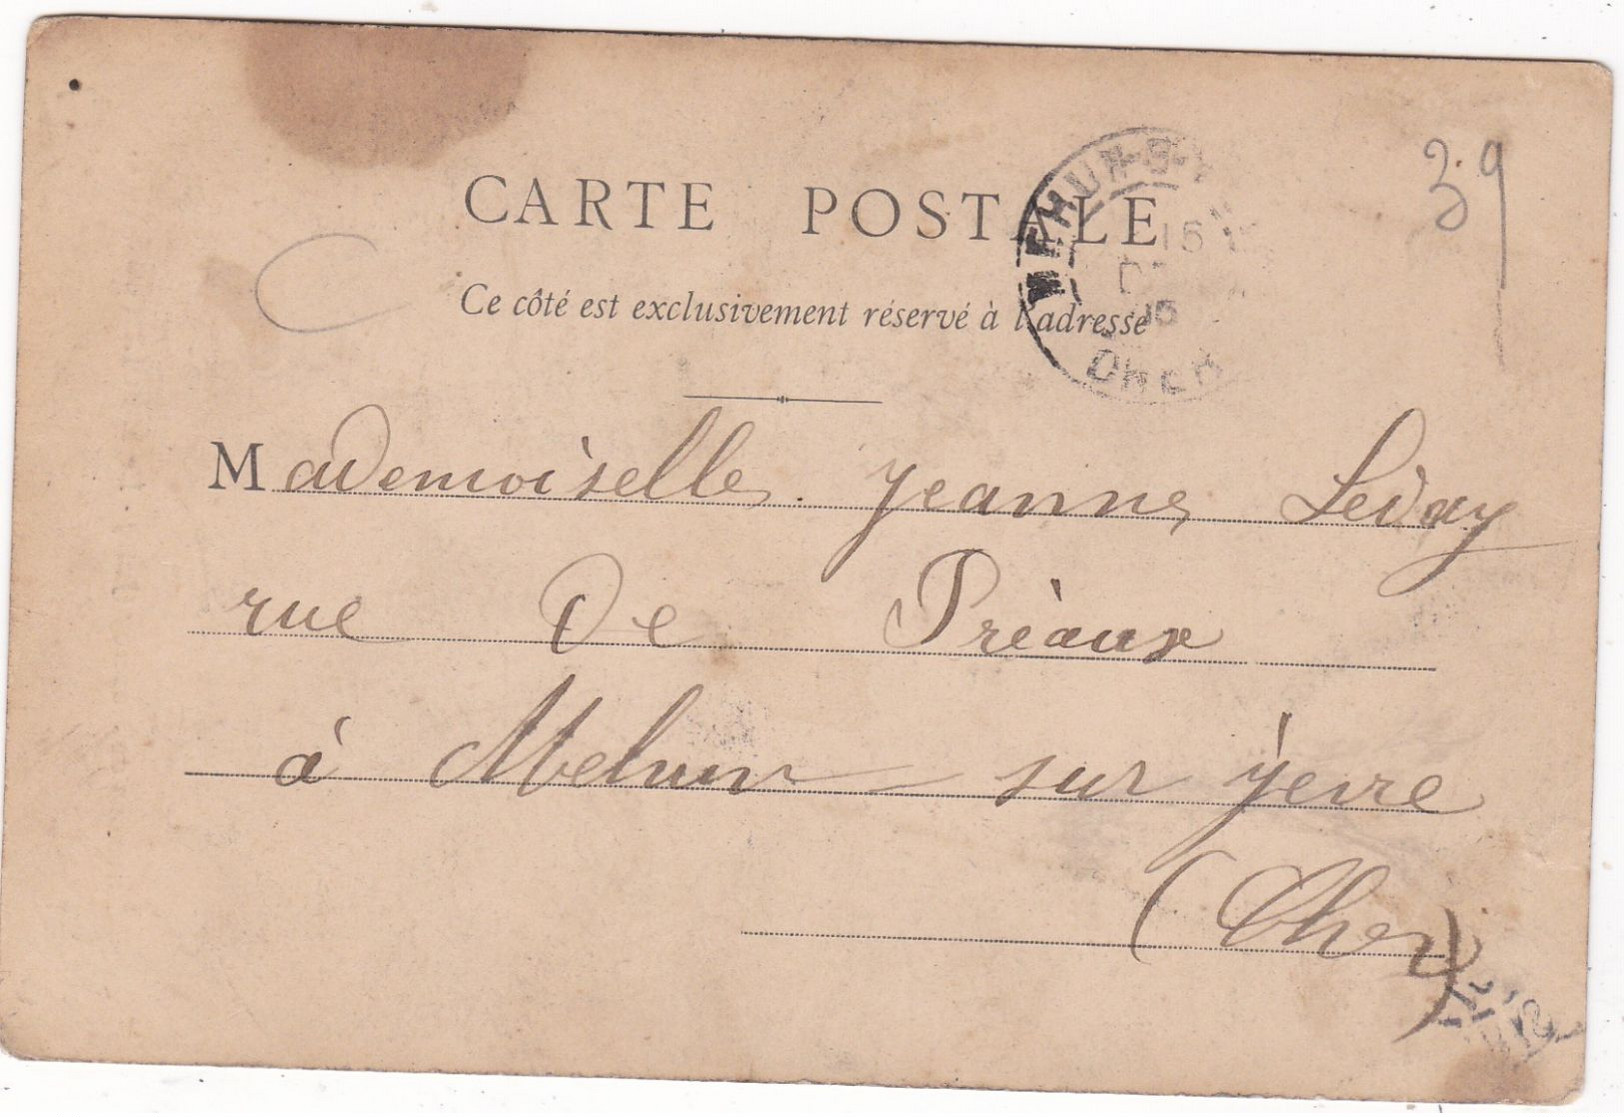 CARTE POSTALE
Ce côté est exclusivement réservé à l'adresse
MEHUN-S-Y
15
CHER
39
Mademoiselle Jeanne
rue de Prèaux
à Mehun sur Yèvre
(Cher)